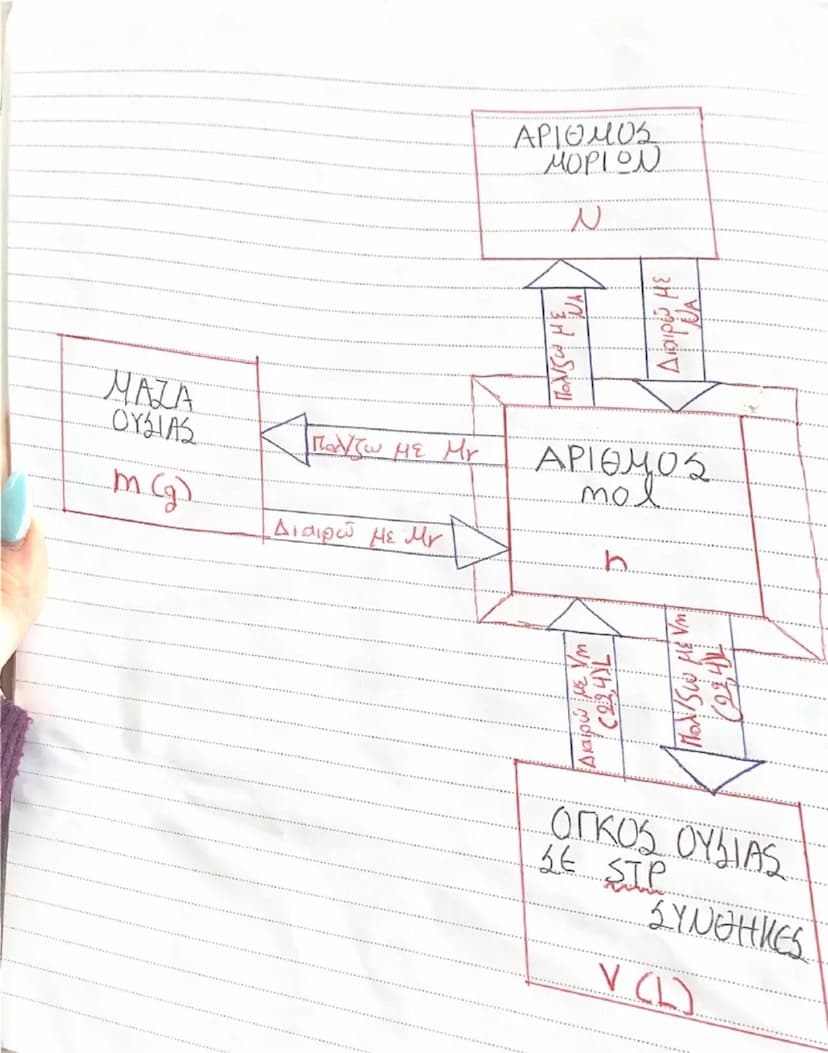 ΑΡΙΘΜΟΣ
ΜΟΡΙΩΝ
N
Πολ/ζω με
NA
Διαιρώ με
NA
ΜΑΖΑ
ΟΥΣΙΑΣ
m(g)
Πολ/ζω με Mr
Διαιρώ με Mr
ΑΡΙΘΜΟΣ
mol
n
Διαιρώ με Vm
(22,4)L
Πολ/ζω με Vm
(22,4)L
ΟΓΚΟΣ ΟΥΣΙΑΣ
ΣΕ STP
ΣΥΝΘΗΚΕΣ
V (L)